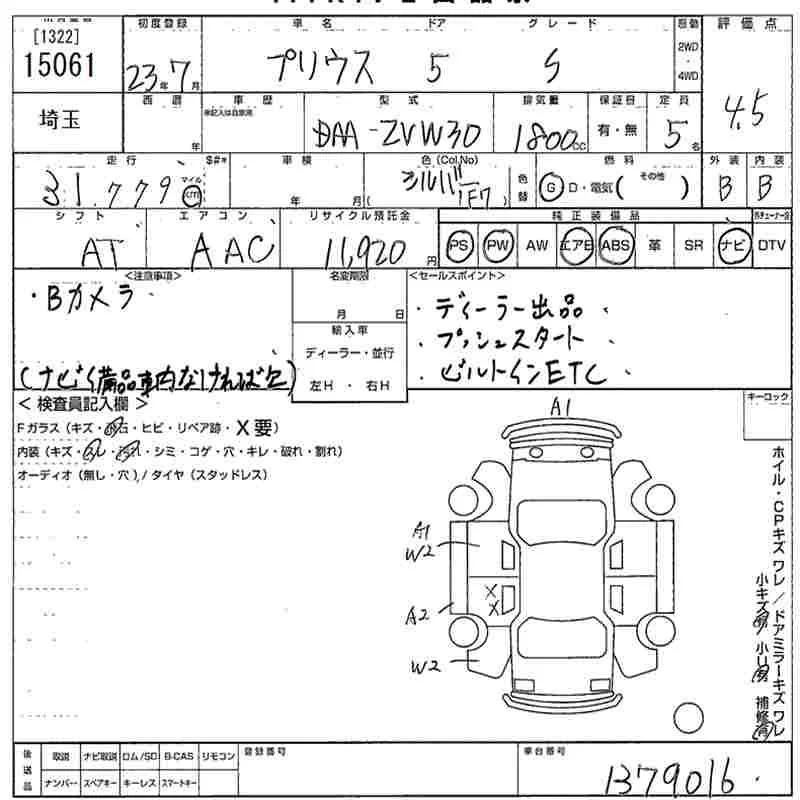 [1322]
15061
初度登録 車名 ドア グレード 駆動 評価点
23年7月 プリウス 5 S 2WD・4WD 4.5
埼玉
西暦 車歴 型式 排気量 保証書 定員
※記入は自家用
年 DAA-ZVW30 1800cc 有・無 5名
走行 $#* 車検 色(Col.No) 燃料 外装 内装
31,779 マイル km 年 月 シルバー 1F7 色替 G D・電気( その他 ) B B
シフト エアコン リサイクル預託金 純正装備品
AT AAC 11,920円 PS PW AW エアB ABS 革 SR ナビ DTV
<注意事項> 名変期限 <セールスポイント>
・Bカメラ 月 日 ・ディーラー出品
輸入車 ・プッシュスタート
ディーラー・並行
(ナビ備品車内なければ欠) 左H ・ 右H ・ビルトインETC
< 検査員記入欄 > A1 キーロック
Fガラス(キズ・ ・ヒビ・リペア跡・X要)
内装(キズ・ ・ ・シミ・コゲ・穴・キレ・破れ・割れ)
オーディオ(無し・穴)/タイヤ(スタッドレス)
A1
W2
X
X
A2
W2
ホイル・CPキズ ワレ/ドアミラーキズ ワレ
小キズ 小凹 補修
後送品 取説 ナビ取説 ロム/SD B-CAS リモコン 登録番号 車台番号
ナンバー スペアキー キーレス スマートキー 1379016